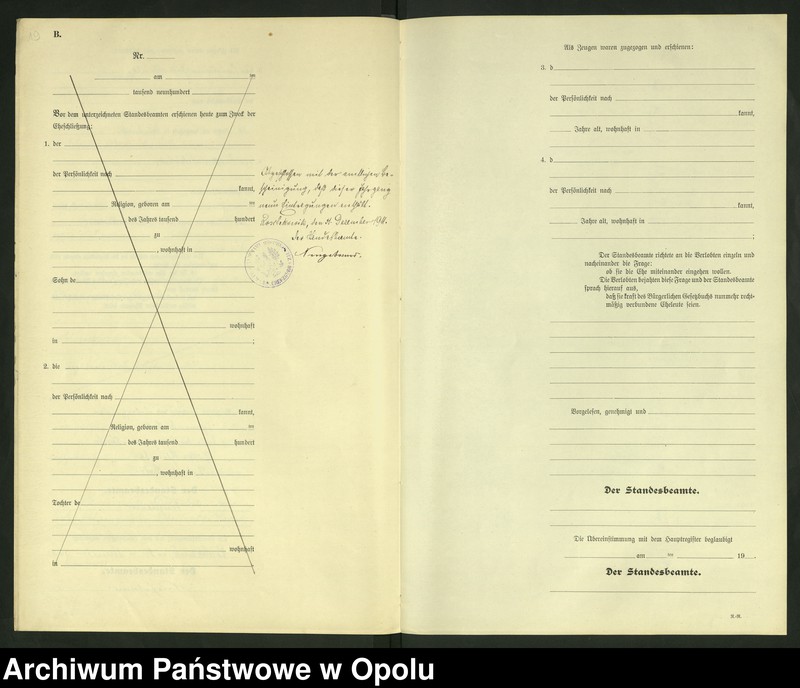 B.
Nr.
am ten
tausend neunhundert
Vor dem unterzeichneten Standesbeamten erschienen heute zum Zweck der
Eheschließung:
1. der
der Persönlichkeit nach
kannt,
Religion, geboren am ten
des Jahres tausend hundert
zu
, wohnhaft in
Sohn de
wohnhaft
in ;
2. die
der Persönlichkeit nach
kannt,
Religion, geboren am ten
des Jahres tausend hundert
zu
, wohnhaft in
Tochter de
wohnhaft
in
Abgeschlossen mit der amtlichen Be-
scheinigung, daß dieser Jahrgang
neun Eintragungen enthält.
den 31. Dezember
Der Standesbeamte.
Als Zeugen waren zugezogen und erschienen:
3. d
der Persönlichkeit nach
kannt,
Jahre alt, wohnhaft in
4. d
der Persönlichkeit nach
kannt,
Jahre alt, wohnhaft in
;
Der Standesbeamte richtete an die Verlobten einzeln und
nacheinander die Frage:
ob sie die Ehe miteinander eingehen wollen.
Die Verlobten bejahten diese Frage und der Standesbeamte
sprach hierauf aus,
daß sie kraft des Bürgerlichen Gesetzbuchs nunmehr recht-
mäßig verbundene Eheleute seien.
Vorgelesen, genehmigt und
Der Standesbeamte.
Die Übereinstimmung mit dem Hauptregister beglaubigt
am ten 19
Der Standesbeamte.
Archiwum Państwowe w Opolu